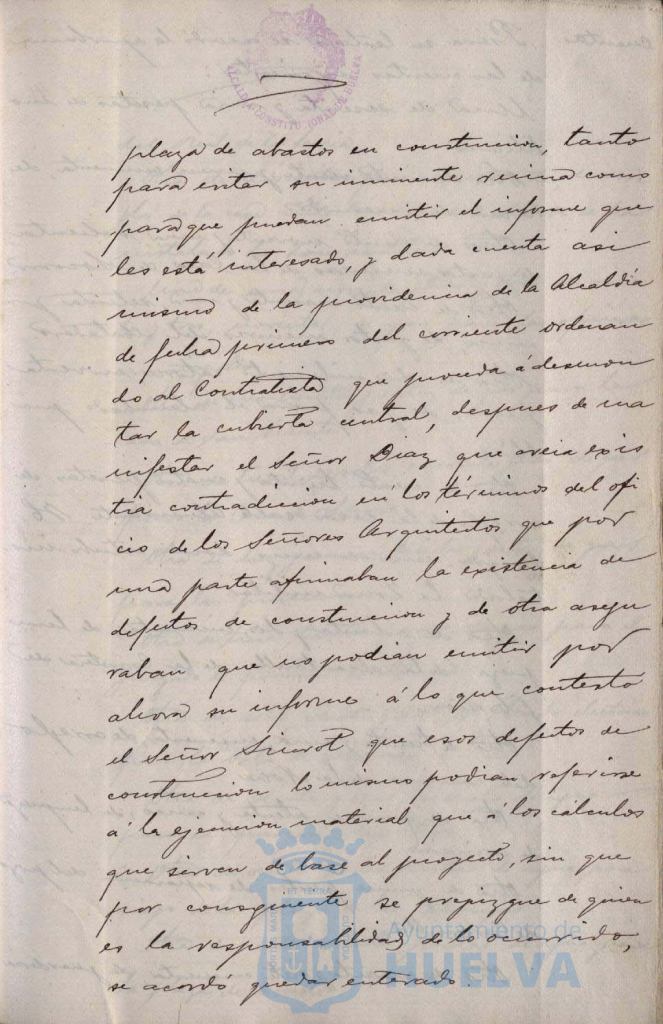 ALCALDIA CONSTITUCIONAL DE HUELVA
plaza de abastos en construccion, tanto
para evitar su inminente ruina como
para que puedan emitir el informe que
les está interesado, y dada cuenta asi
mismo de la providencia de la Alcaldía
de fecha primero del corriente ordenan
do al Contratista que proceda á desmon
tar la cubierta central, despues de ma
nifestar el Señor Diaz que creia exis
tia contradiccion en los términos del ofi
cio de los Señores Arquitectos que por
una parte afirmaban la existencia de
defectos de construccion y de otra asegu
raban que no podian emitir por
ahora su informe á lo que contestó
el Señor Siurot que esos defectos de
construccion lo mismo podian referirse
á la ejecucion material que á los cálculos
que sirven de base al proyecto, sin que
por consiguiente se prejuzgue de quien
es la responsabilidad de lo ocurrido,
se acordó quedar enterado.
Ayuntamiento de
HUELVA